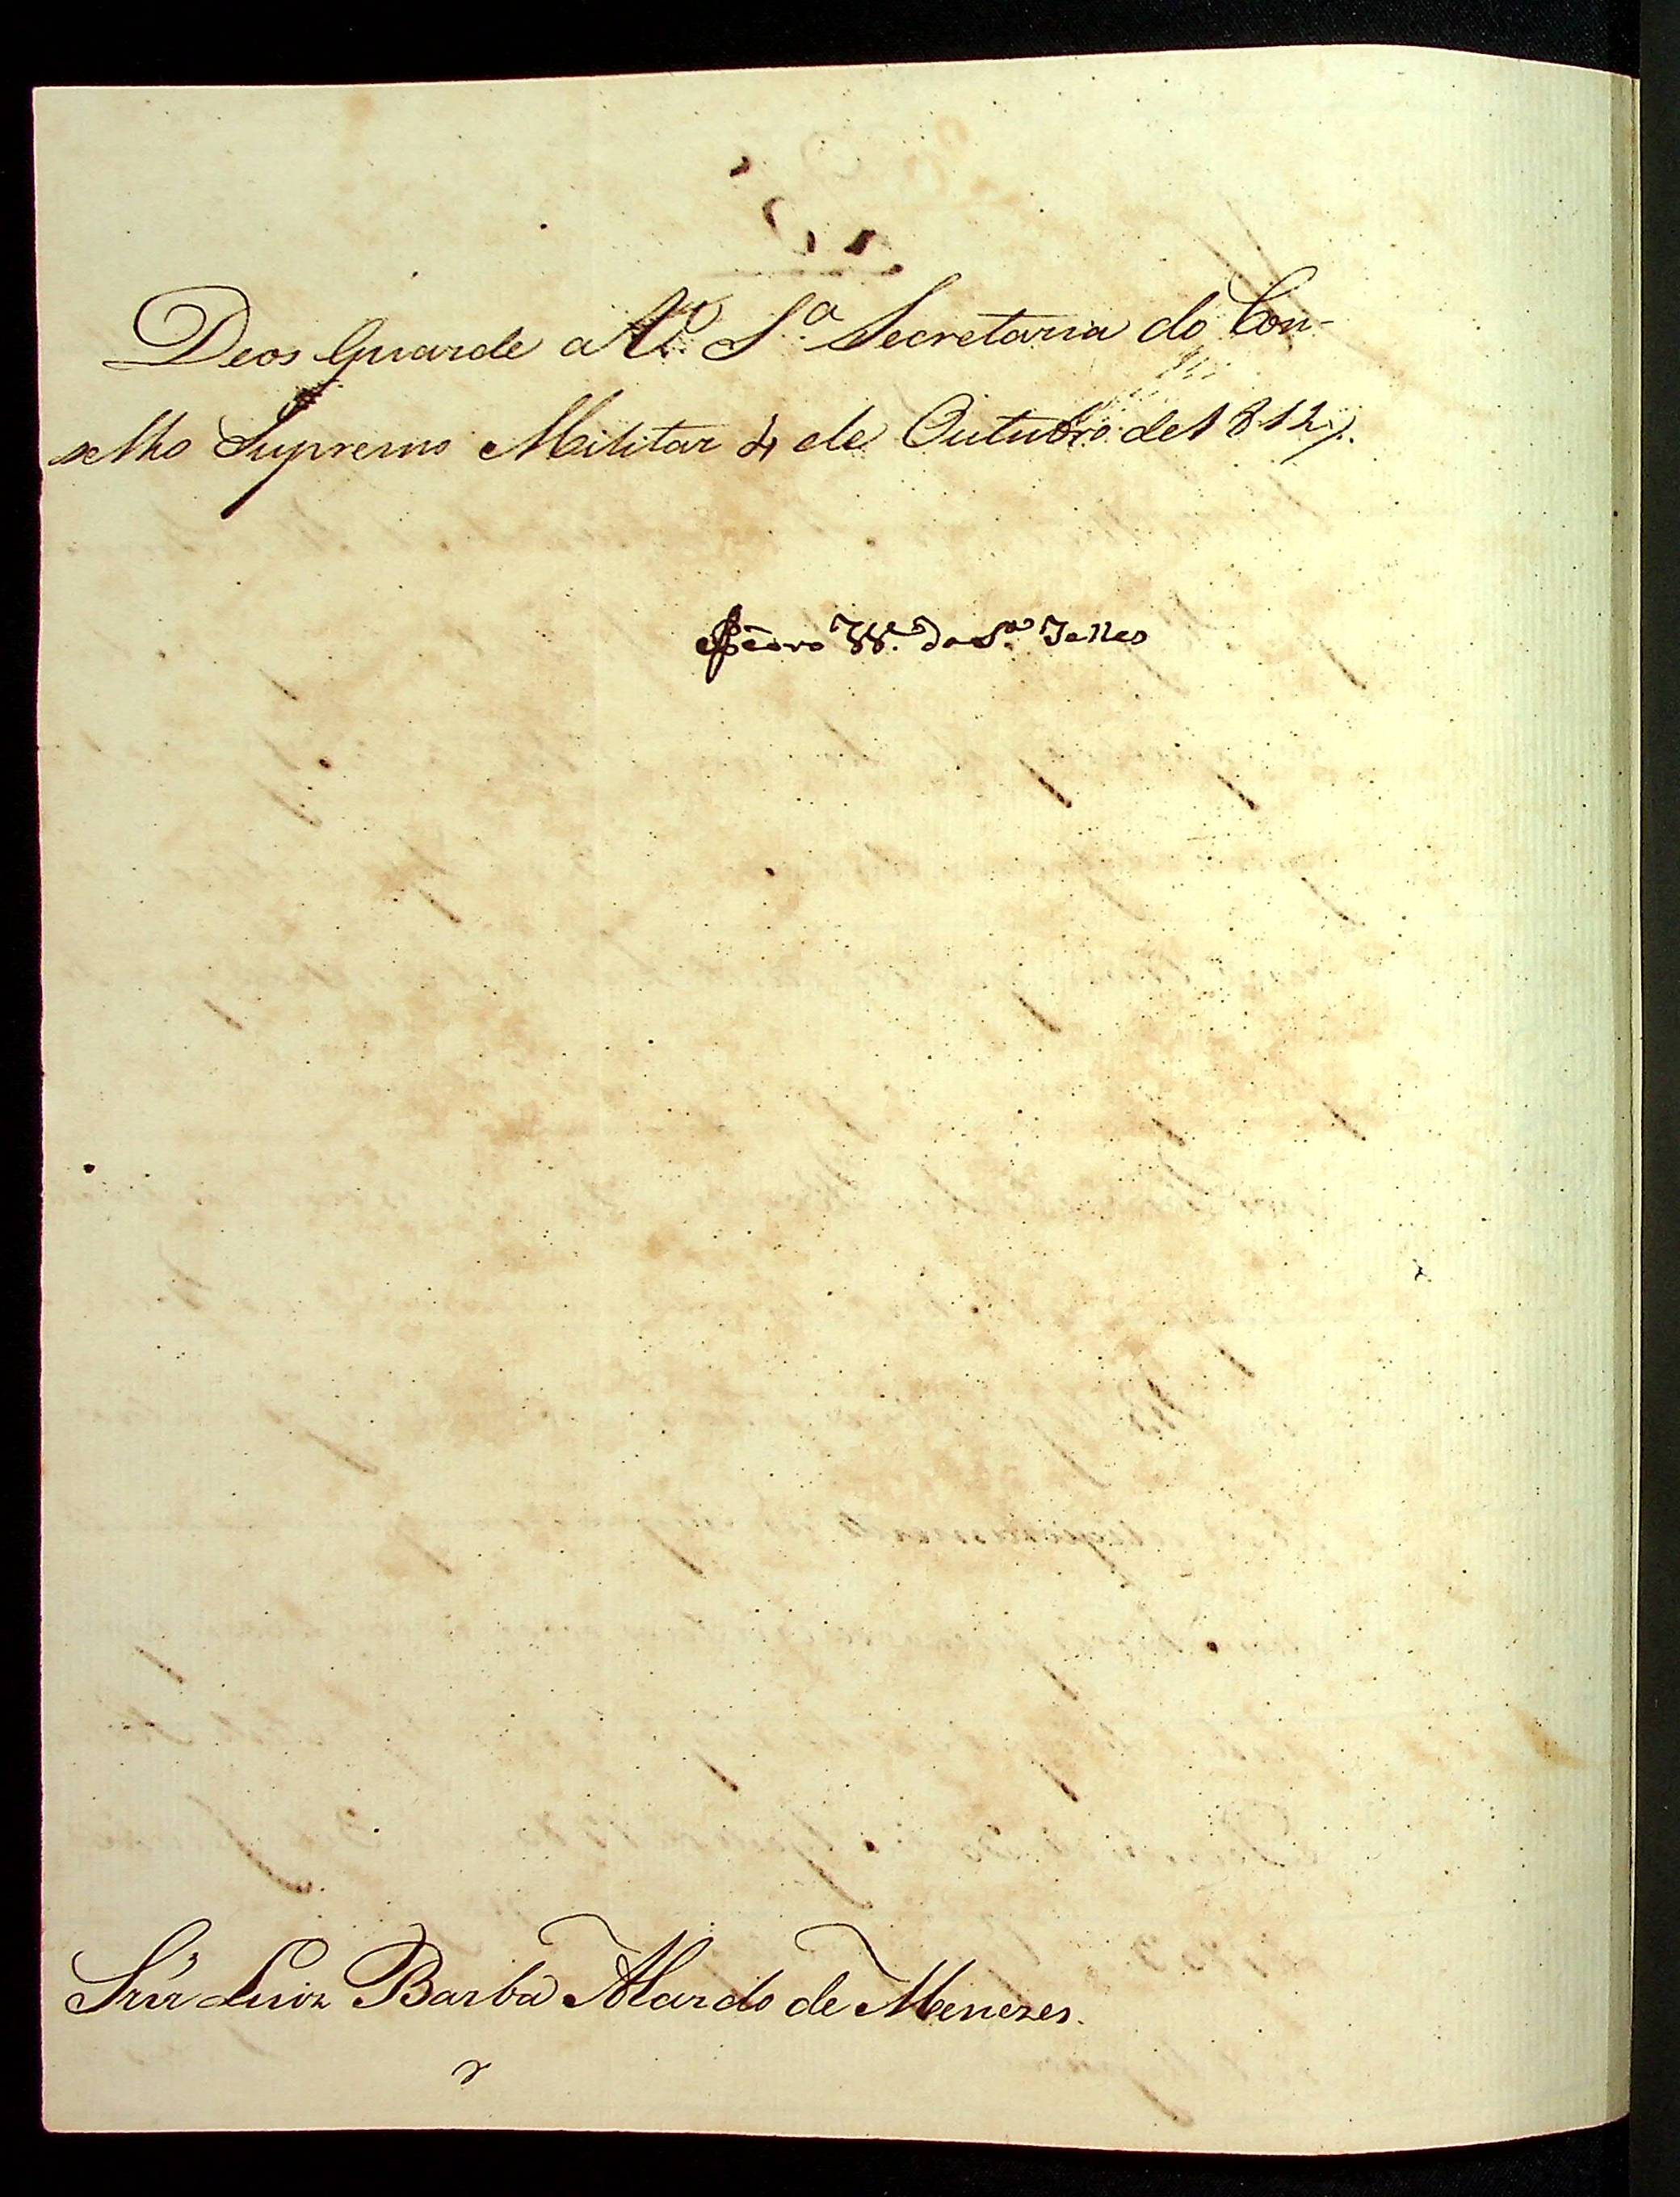 Deos Guarde a V. S.ª Secretaria do Con-
selho Supremo Militar 4 de Outubro de 1812,,
Pedro Vr.ª da S.ª Telles
Snr̃ Luiz Barba Alardo de Menezes.